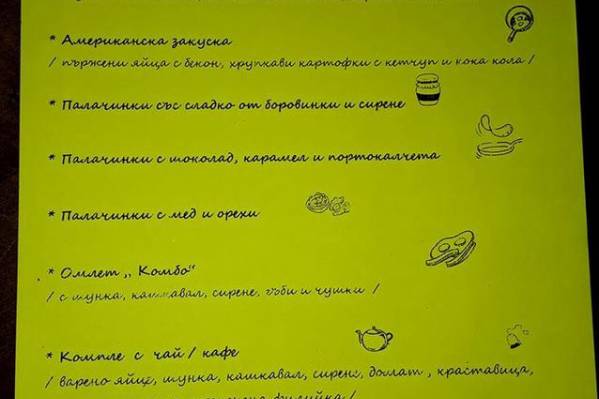 * Американска закуска
/ пържени яйца с бекон, хрупкави картофки с кетчуп и кока кола /
* Палачинки със сладко от боровинки и сирене
* Палачинки с шоколад, карамел и портокалчета
* Палачинки с мед и орехи
* Омлет „ Комбо“
/ с шунка, кашкавал, сирене, гъби и чушки /
* Компле с чай / кафе
/ варено яйце, шунка, кашкавал, сирене, домат , краставица,